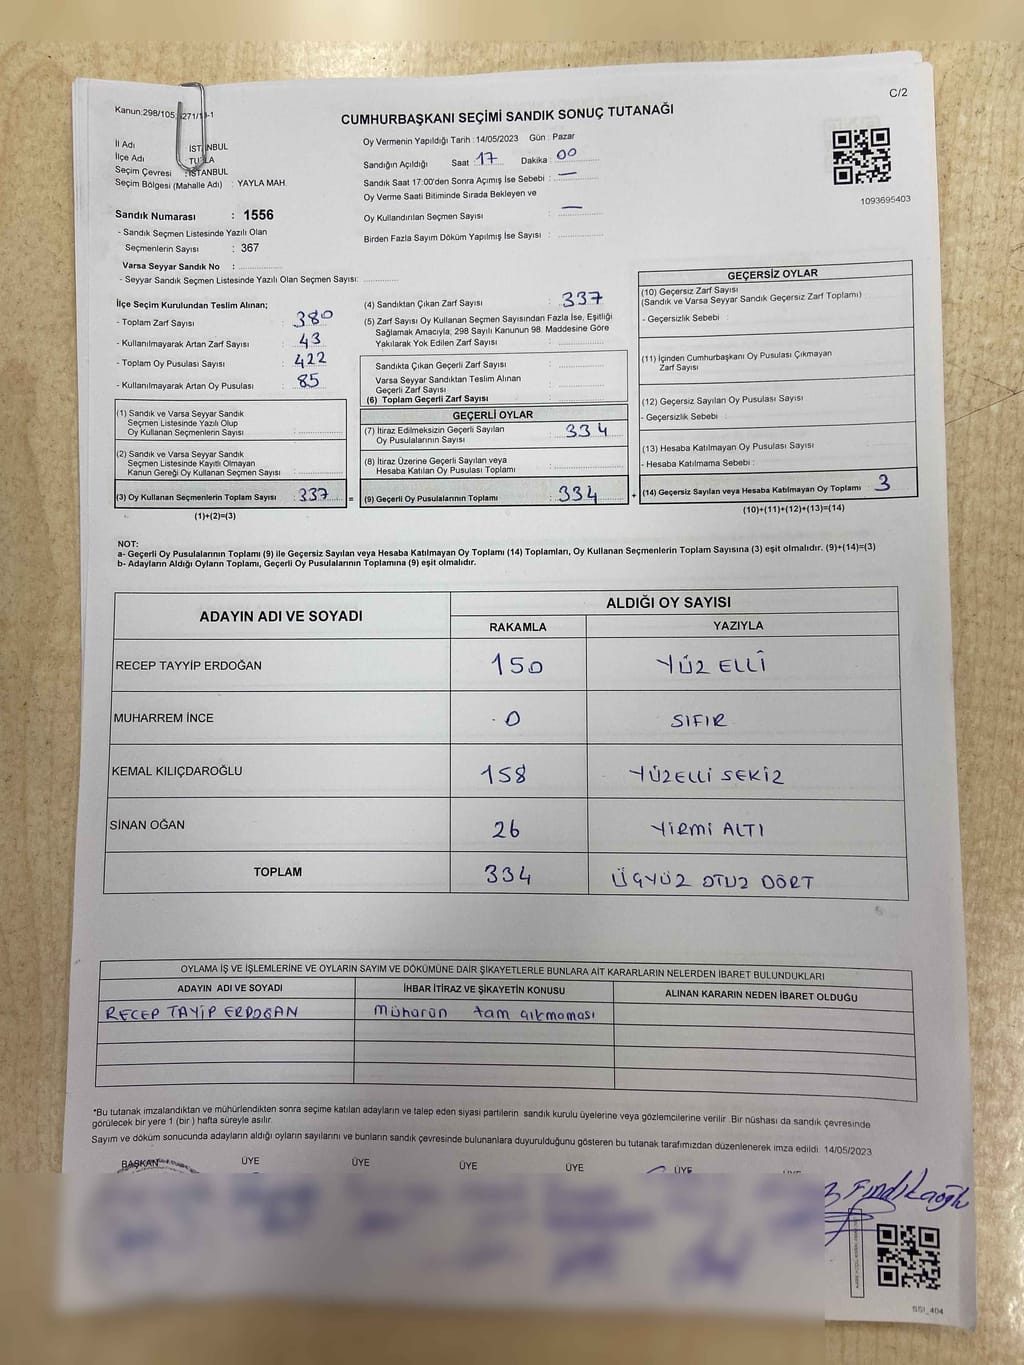 C/2
Kanun:298/105, 271/1
CUMHURBAŞKANI SEÇİMİ SANDIK SONUÇ TUTANAĞI
İl Adı İSTANBUL
İlçe Adı TUZLA
Seçim Çevresi : İSTANBUL
Seçim Bölgesi (Mahalle Adı) : YAYLA MAH.
Sandık Numarası : 1556
- Sandık Seçmen Listesinde Yazılı Olan
Seçmenlerin Sayısı : 367
Varsa Seyyar Sandık No :
- Seyyar Sandık Seçmen Listesinde Yazılı Olan Seçmen Sayısı:
Oy Vermenin Yapıldığı Tarih : 14/05/2023 Gün : Pazar
Sandığın Açıldığı Saat : 17 Dakika : 00
Sandık Saat 17:00'den Sonra Açımış İse Sebebi : —
Oy Verme Saati Bitiminde Sırada Bekleyen ve
Oy Kullandırılan Seçmen Sayısı : —
Birden Fazla Sayım Döküm Yapılmış İse Sayısı :
1093695403
İlçe Seçim Kurulundan Teslim Alınan;
- Toplam Zarf Sayısı : 380
- Kullanılmayarak Artan Zarf Sayısı : 43
- Toplam Oy Pusulası Sayısı : 422
- Kullanılmayarak Artan Oy Pusulası : 85
(1) Sandık ve Varsa Seyyar Sandık
Seçmen Listesinde Yazılı Olup
Oy Kullanan Seçmenlerin Sayısı :
(2) Sandık ve Varsa Seyyar Sandık
Seçmen Listesinde Kayıtlı Olmayan
Kanun Gereği Oy Kullanan Seçmen Sayısı :
(3) Oy Kullanan Seçmenlerin Toplam Sayısı : 337 =
(1)+(2)=(3)
(4) Sandıktan Çıkan Zarf Sayısı : 337
(5) Zarf Sayısı Oy Kullanan Seçmen Sayısından Fazla İse, Eşitliği
Sağlamak Amacıyla; 298 Sayılı Kanunun 98. Maddesine Göre
Yakılarak Yok Edilen Zarf Sayısı :
Sandıkta Çıkan Geçerli Zarf Sayısı :
Varsa Seyyar Sandıktan Teslim Alınan
Geçerli Zarf Sayısı :
(6) Toplam Geçerli Zarf Sayısı
GEÇERLİ OYLAR
(7) İtiraz Edilmeksizin Geçerli Sayılan
Oy Pusulalarının Sayısı : 334
(8) İtiraz Üzerine Geçerli Sayılan veya
Hesaba Katılan Oy Pusulası Toplamı :
(9) Geçerli Oy Pusulalarının Toplamı : 334 +
GEÇERSİZ OYLAR
(10) Geçersiz Zarf Sayısı
(Sandık ve Varsa Seyyar Sandık Geçersiz Zarf Toplamı)
- Geçersizlik Sebebi :
(11) İçinden Cumhurbaşkanı Oy Pusulası Çıkmayan
Zarf Sayısı
(12) Geçersiz Sayılan Oy Pusulası Sayısı
- Geçersizlik Sebebi :
(13) Hesaba Katılmayan Oy Pusulası Sayısı
- Hesaba Katılmama Sebebi :
(14) Geçersiz Sayılan veya Hesaba Katılmayan Oy Toplamı 3
(10)+(11)+(12)+(13)=(14)
NOT:
a- Geçerli Oy Pusulalarının Toplamı (9) ile Geçersiz Sayılan veya Hesaba Katılmayan Oy Toplamı (14) Toplamları, Oy Kullanan Seçmenlerin Toplam Sayısına (3) eşit olmalıdır. (9)+(14)=(3)
b- Adayların Aldığı Oyların Toplamı, Geçerli Oy Pusulalarının Toplamına (9) eşit olmalıdır.
ADAYIN ADI VE SOYADI ALDIĞI OY SAYISI
RAKAMLA YAZIYLA
RECEP TAYYİP ERDOĞAN 150 YÜZ ELLİ
MUHARREM İNCE 0 SIFIR
KEMAL KILIÇDAROĞLU 158 YÜZELLİ SEKİZ
SİNAN OĞAN 26 YİRMİ ALTI
TOPLAM 334 ÜÇYÜZ OTUZ DÖRT
OYLAMA İŞ VE İŞLEMLERİNE VE OYLARIN SAYIM VE DÖKÜMÜNE DAİR ŞİKAYETLERLE BUNLARA AİT KARARLARIN NELERDEN İBARET BULUNDUKLARI
ADAYIN ADI VE SOYADI İHBAR İTİRAZ VE ŞİKAYETİN KONUSU ALINAN KARARIN NEDEN İBARET OLDUĞU
RECEP TAYİP ERDOĞAN Mühürün tam çıkmaması
*Bu tutanak imzalandıktan ve mühürlendikten sonra seçime katılan adayların ve talep eden siyasi partilerin sandık kurulu üyelerine veya gözlemcilerine verilir. Bir nüshası da sandık çevresinde
görülecek bir yere 1 (bir ) hafta süreyle asılır.
Sayım ve döküm sonucunda adayların aldığı oyların sayılarını ve bunların sandık çevresinde bulunanlara duyurulduğunu gösteren bu tutanak tarafımızdan düzenlenerek imza edildi. 14/05/2023
BAŞKAN ÜYE ÜYE ÜYE ÜYE ÜYE
Fındıkaoğlu
SSI_404